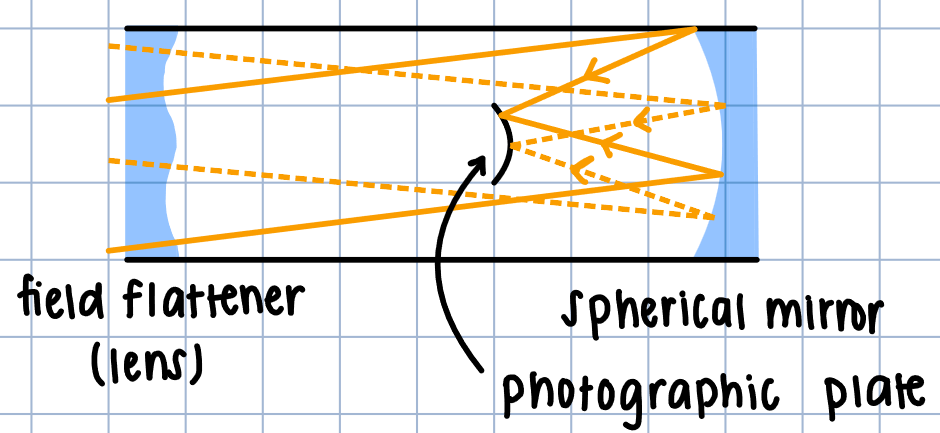 field flattener
(lens)
spherical mirror
photographic plate